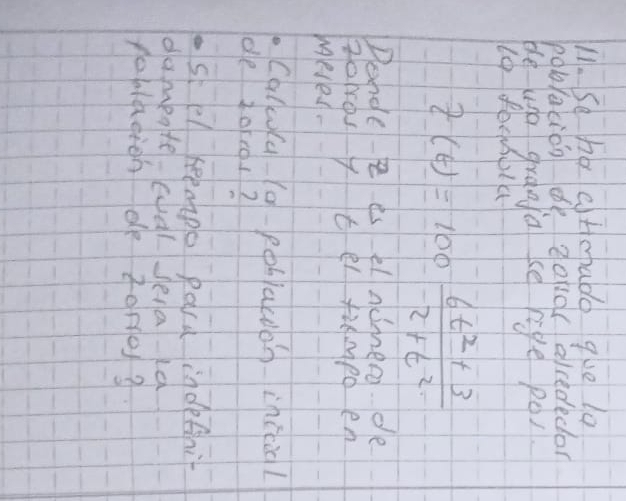 11.- Se ha estimado que la
población de zorros alrededor
de una granja se rige por
la formula
z (t) = 100 6t² + 3 / 2 + t²
Donde z es el número de
zorros y t el tiempo en
meses.
• Calcula la población inicial
de zorros?
• Si el tiempo pasa indefini-
damente cual sera la
población de zorros?